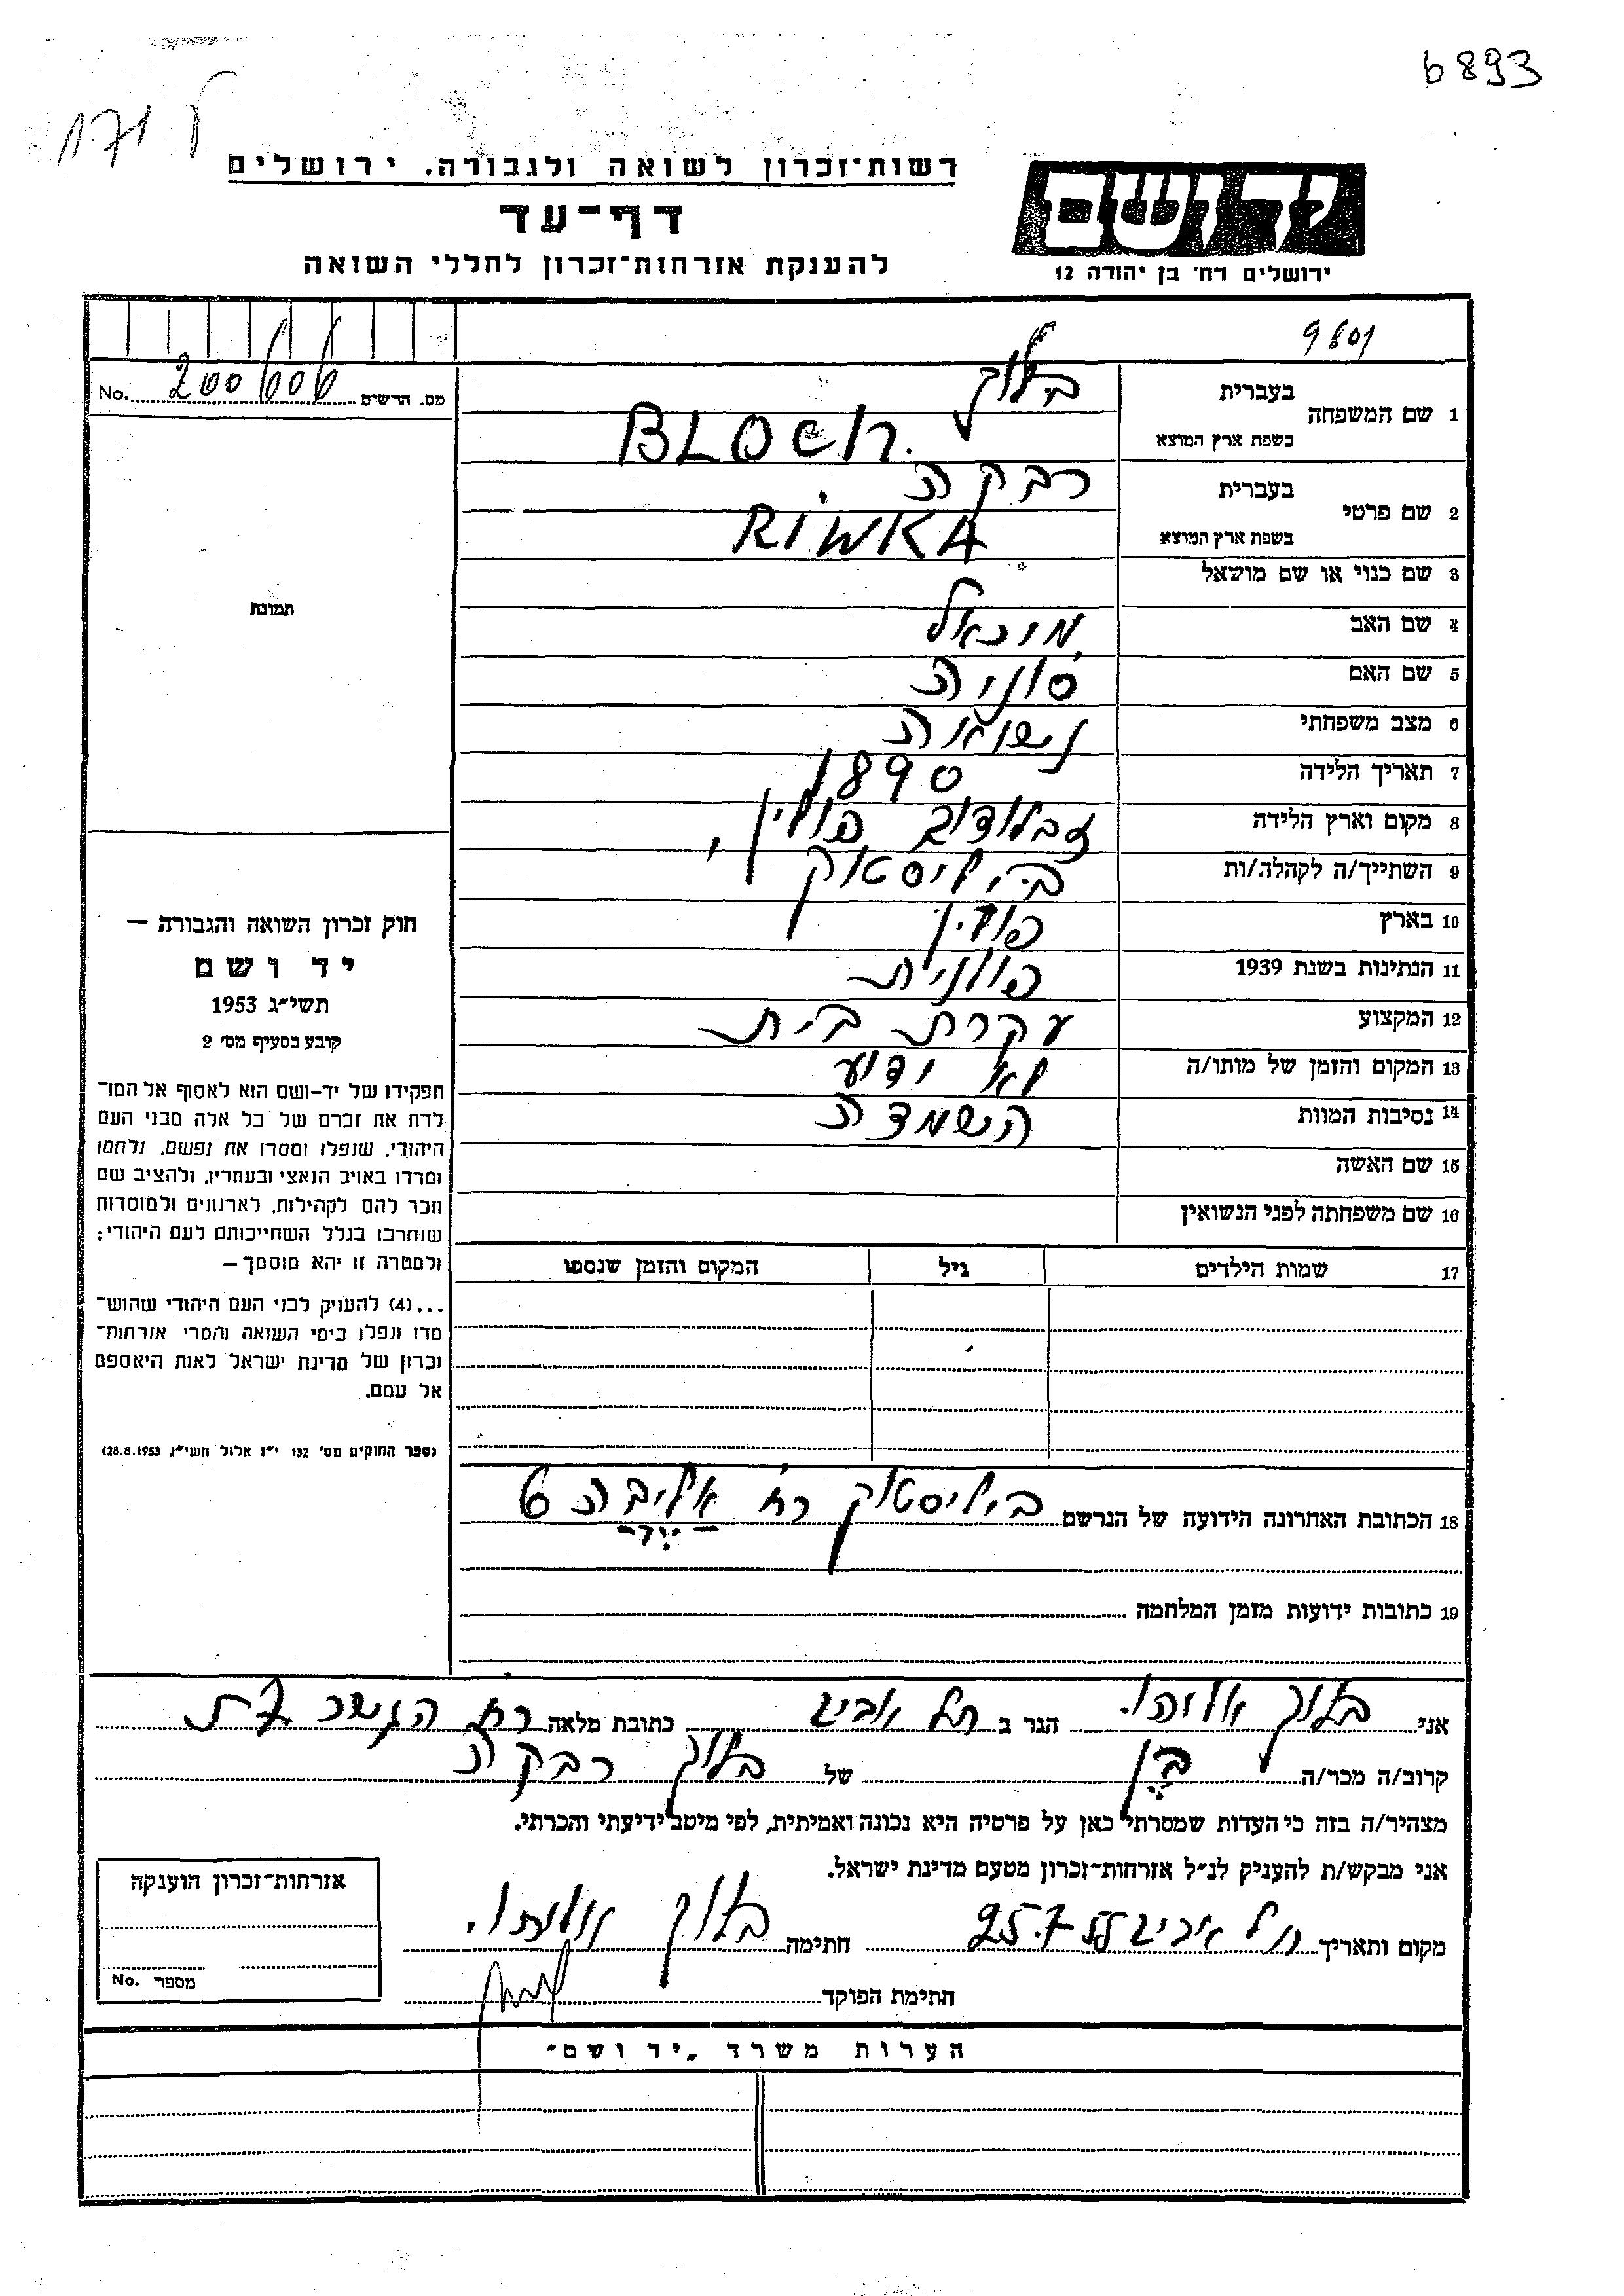 6893
רשות־זכרון לשואה ולגבורה, ירושלים
דף־עד
להענקת אזרחות־זכרון לחללי השואה
יד ושם
ירושלים רח׳ בן יהודה 12
מס. הרשים 200606 No.
1 שם המשפחה בעברית בלוך
בשפת ארץ המוצא BLOCH.
2 שם פרטי בעברית רבקה
בשפת ארץ המוצא RIWKA
3 שם כנוי או שם מושאל
4 שם האב מיכאל
5 שם האם סוניה
6 מצב משפחתי נשואה
7 תאריך הלידה 1890
8 מקום וארץ הלידה זבלודוב פולין,
9 השתייך/ה לקהלה/ות ביליסטוק
10 בארץ פולין
11 הנתינות בשנת 1939 פולנית
12 המקצוע עקרת בית
13 המקום והזמן של מותו/ה לא ידוע
14 נסיבות המוות השמדה
15 שם האשה
16 שם משפחתה לפני הנשואין
17 שמות הילדים גיל המקום והזמן שנספו
תמונה
חוק זכרון השואה והגבורה —
יד ושם
תשי״ג 1953
קובע בסעיף מס׳ 2
תפקידו של יד-ושם הוא לאסוף אל המו־
לדת את זכרם של כל אלה מבני העם
היהודי, שנפלו ומסרו את נפשם, נלחמו
ומרדו באויב הנאצי ובעוזריו, ולהציב שם
וזכר להם לקהילות, לארגונים ולמוסדות
שנחרבו בגלל השתייכותם לעם היהודי;
ולמטרה זו יהא מוסמך —
...(4) להעניק לבני העם היהודי שהוש־
מדו ונפלו בימי השואה והמרי אזרחות־
זכרון של מדינת ישראל לאות היאספם
אל עמם.
(ספר החוקים מס׳ 132 י״ז אלול תשי״ג 28.8.1953)
18 הכתובת האחרונה הידועה של הנרשם ביליסטוק רח׳ אליבה 6
19 כתובות ידועות מזמן המלחמה
אני בלוך אליהו. הגר ב תל אביב כתובת מלאה רח׳
קרוב/ה מכר/ה בן של בלוך רבקה
מצהיר/ה בזה כי העדות שמסרתי כאן על פרטיה היא נכונה ואמיתית, לפי מיטב ידיעתי והכרתי.
אני מבקש/ת להעניק לנ״ל אזרחות־זכרון מטעם מדינת ישראל.
מקום ותאריך תל אביב 25.7.55 חתימה בלוך אליהו.
חתימת הפוקד
אזרחות־זכרון הוענקה
מספר No.
הערות משרד „יד ושם״